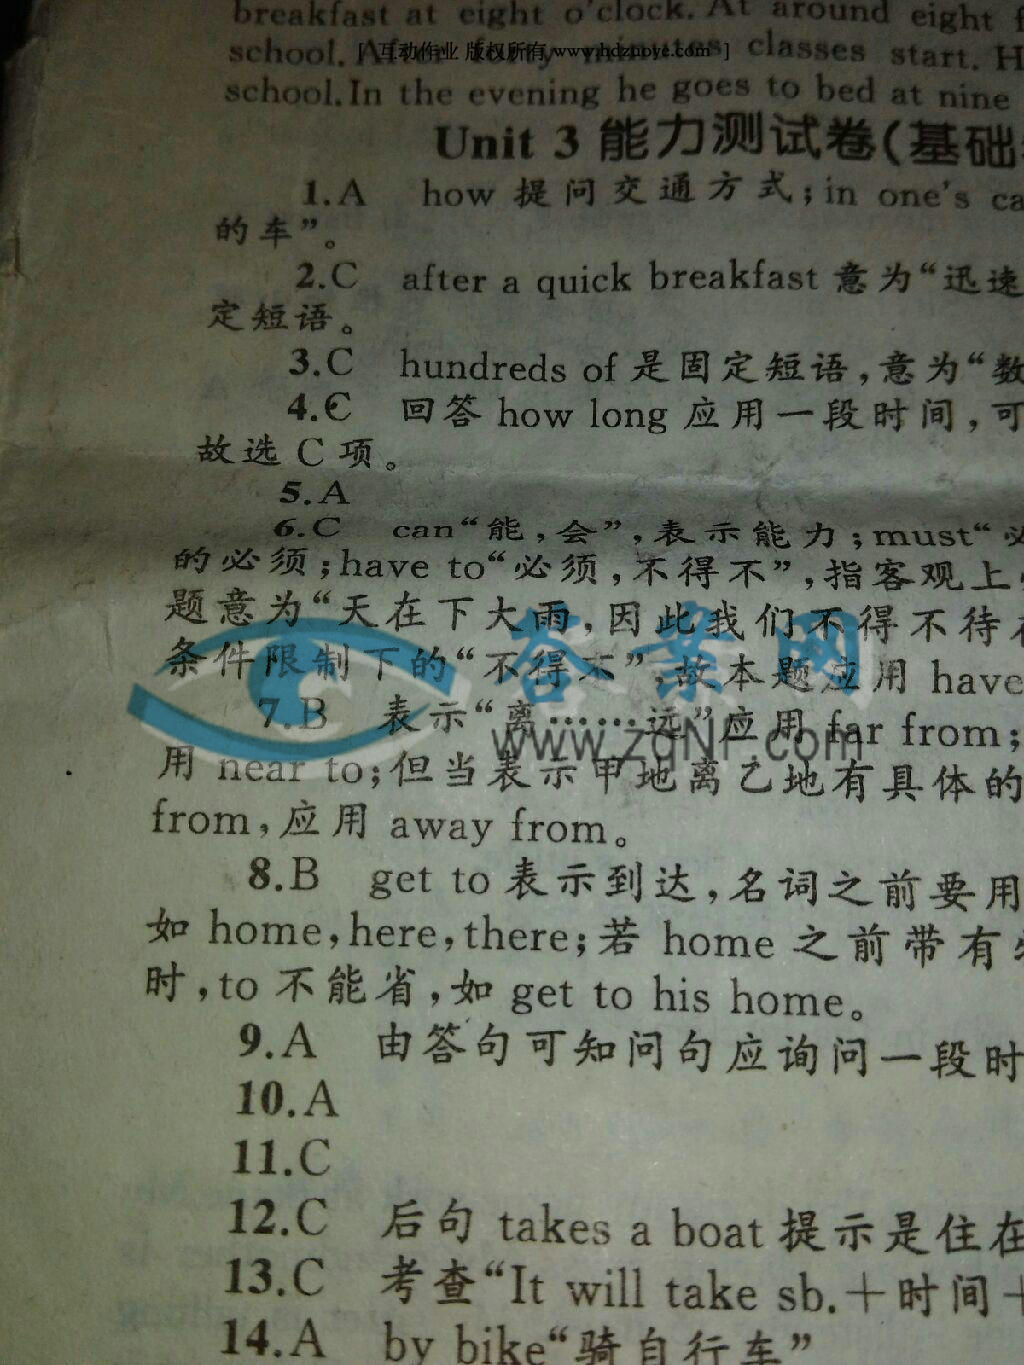 breakfast at eight o'clock. At around eight
school. After forty minutes classes start. H
[ 互动作业 版权所有 www.hdzuoye.com ]
school. In the evening he goes to bed at nine
Unit 3 能力测试卷(基础
1.A how 提问交通方式;in one's ca
的车”。
2.C after a quick breakfast 意为“迅速
定短语。
3.C hundreds of 是固定短语,意为“数
4.C 回答 how long 应用一段时间,可
故选 C 项。
5.A
6.C can“能,会”,表示能力;must“必
的必须;have to“必须,不得不”,指客观上
题意为“天在下大雨,因此我们不得不待在
条件限制下的“不得不”,故本题应用 have
答案网
7.B 表示“离……远”应用 far from;
www.zqNf.com
用 near to;但当表示甲地离乙地有具体的
from,应用 away from。
8.B get to 表示到达,名词之前要用
如 home,here,there;若 home 之前带有
时,to 不能省,如 get to his home。
9.A 由答句可知问句应询问一段时
10.A
11.C
12.C 后句 takes a boat 提示是住在
13.C 考查“It will take sb.+时间+
14.A by bike“骑自行车”